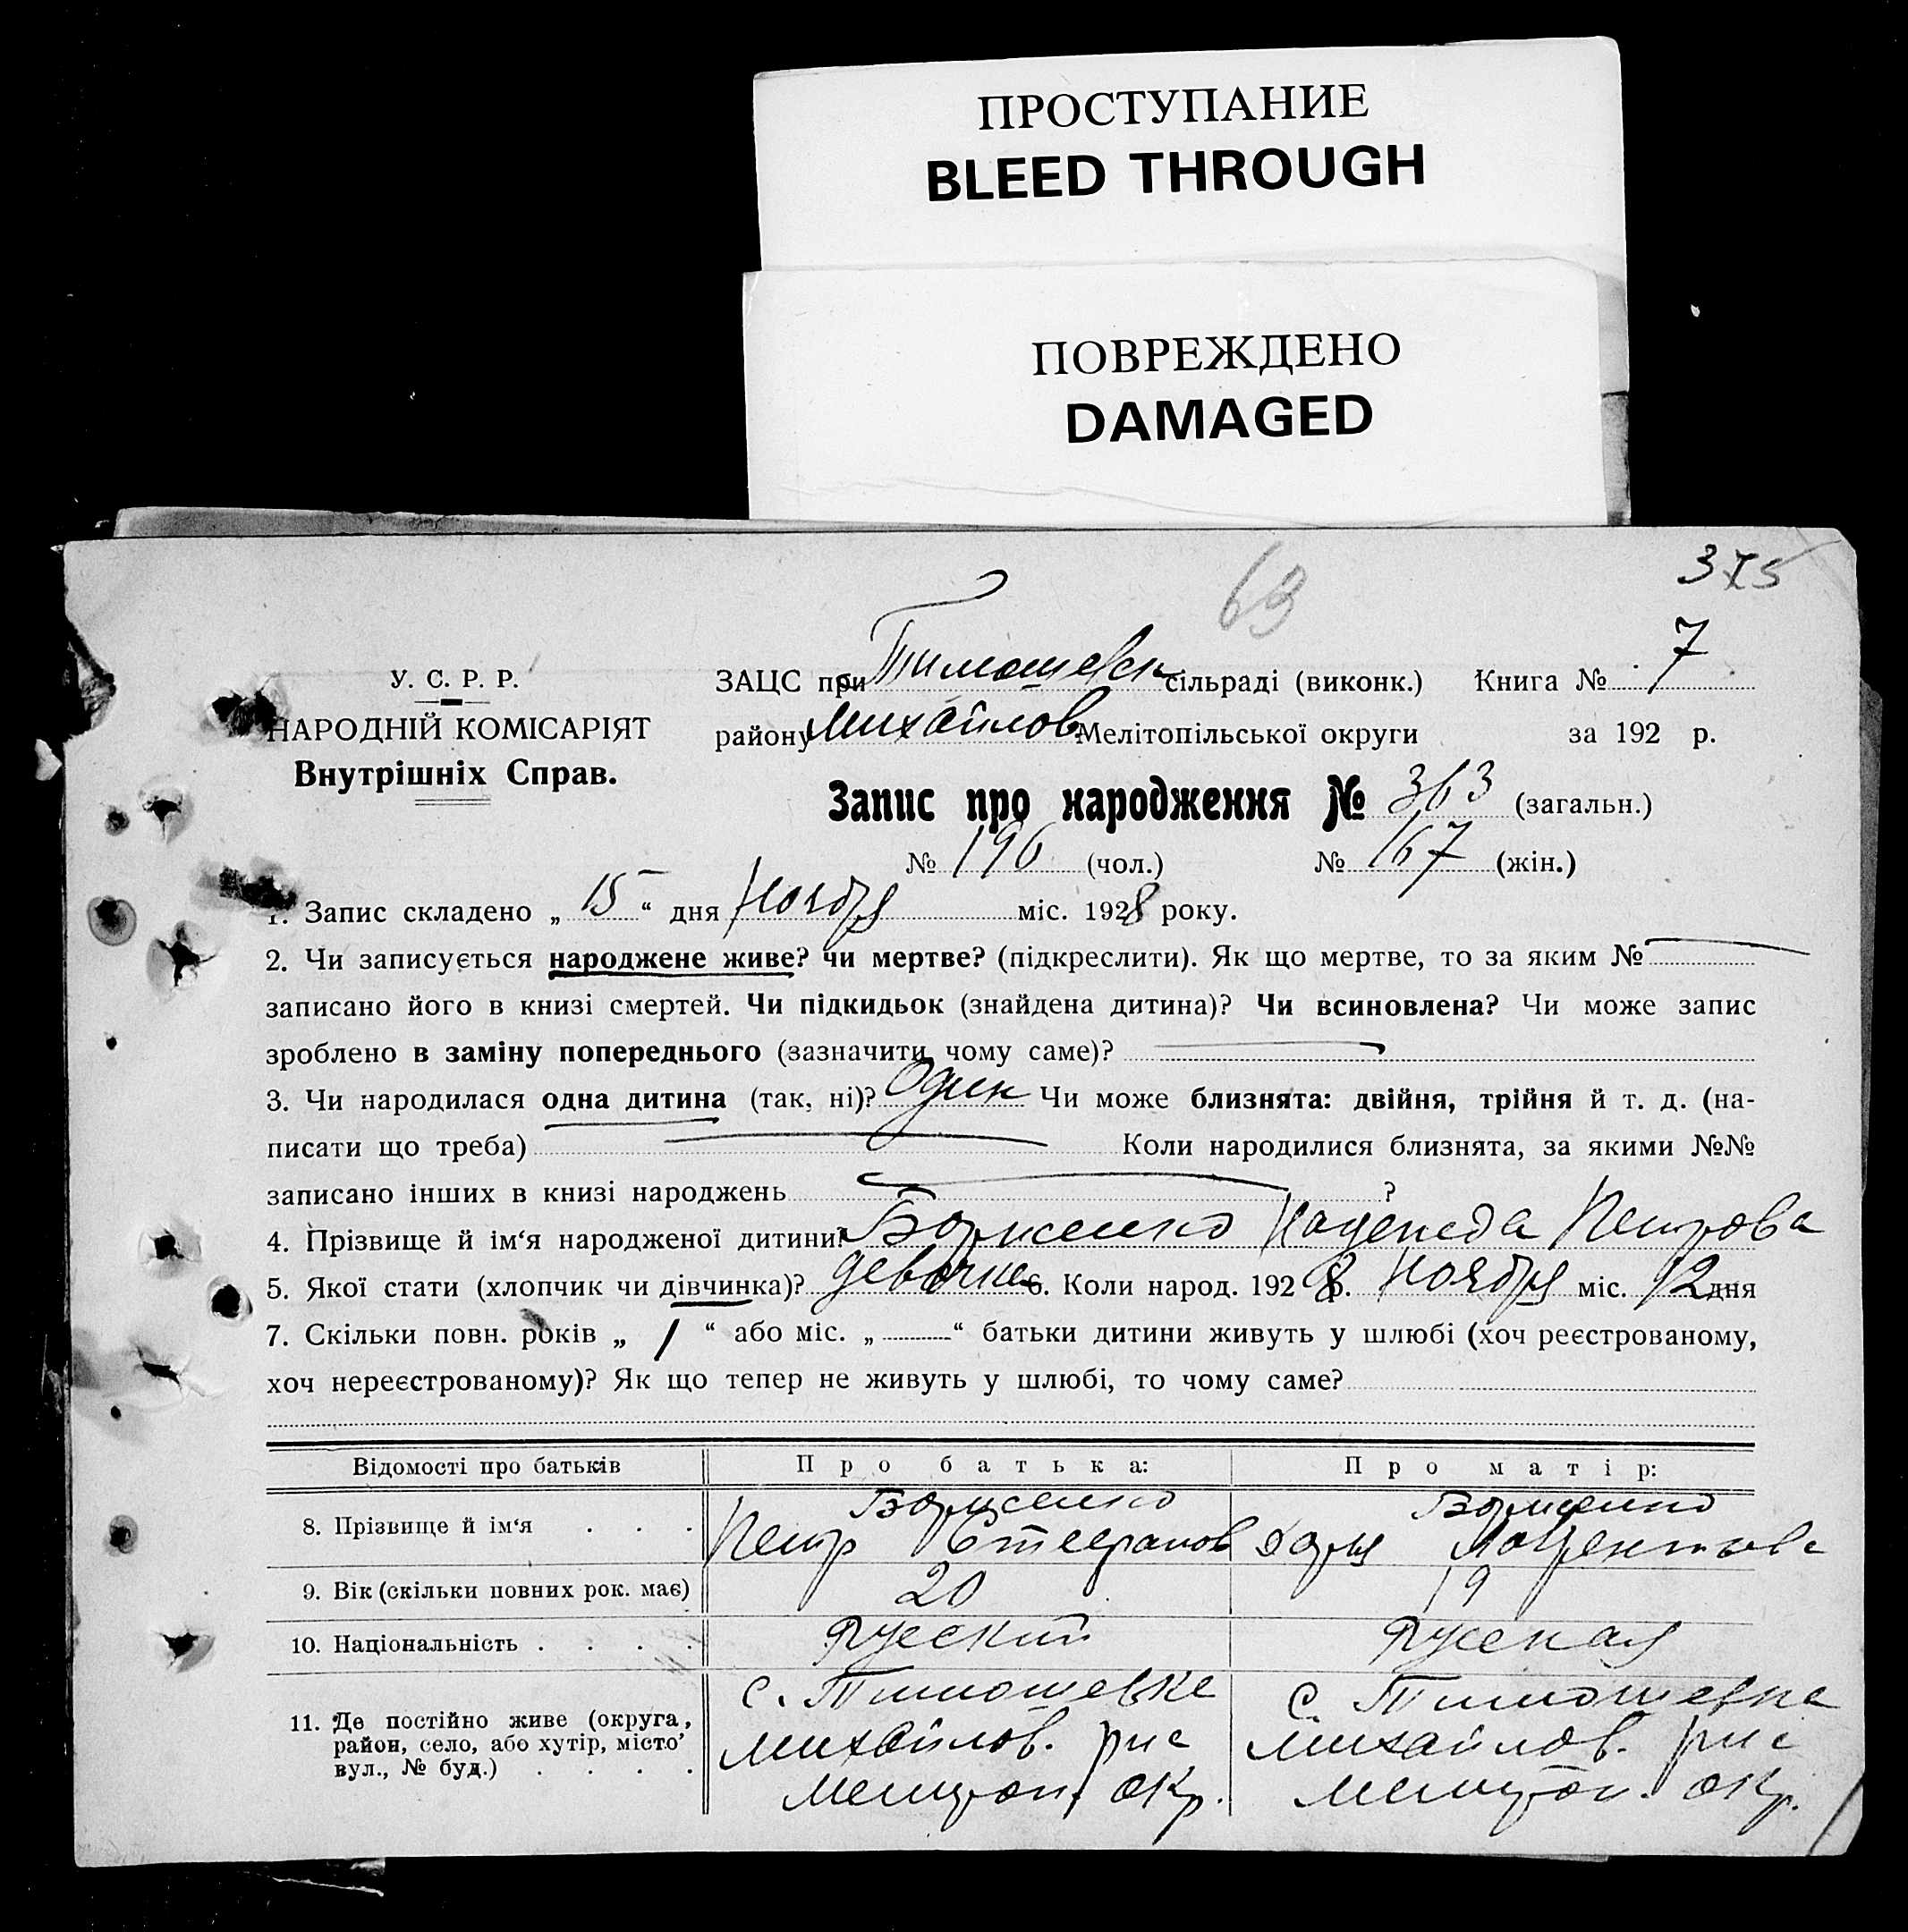 ПРОСТУПАНИЕ
BLEED THROUGH
ПОВРЕЖДЕНО
DAMAGED
375
63
У. С. Р. Р.
НАРОДНІЙ КОМІСАРІЯТ
Внутрішніх Справ.
ЗАЦС при Тимошевск сільраді (виконк.) Книга № 7
району Михайлов. Мелітопільської округи за 192 р.
Запис про народження № 363 (загальн.)
№ 196 (чол.) № 167 (жін.)
1. Запис складено „ 15 “ дня Ноября міс. 1928 року.
2. Чи записується народжене живе? чи мертве? (підкреслити). Як що мертве, то за яким №
записано його в книзі смертей. Чи підкидьок (знайдена дитина)? Чи всиновлена? Чи може запис
зроблено в заміну попереднього (зазначити чому саме)?
3. Чи народилася одна дитина (так, ні)? Один Чи може близнята: двійня, трійня й т. д. (на-
писати що треба) Коли народилися близнята, за якими №№
записано інших в книзі народжень ?
4. Прізвище й ім‘я народженої дитини? Надежда Петрова
5. Якої стати (хлопчик чи дівчинка)? девочка 6. Коли народ. 1928 р. Ноября міс. 12 дня
7. Скільки повн. років „ 1 “ або міс. „ “ батьки дитини живуть у шлюбі (хоч реєстрованому,
хоч нереєстрованому)? Як що тепер не живуть у шлюбі, то чому саме?
Відомості про батьків Про батька: Про матір:
8. Прізвище й ім‘я . . .
Петр Стефанов
9. Вік (скільки повних рок. має) 20 19
10. Національність . . . . Русский Русская
11. Де постійно живе (округа, район, село, або хутір, місто’ вул., № буд.) . . . .
с. Тимошевке
Михайлов. р
Мелитоп. окр.
с. Тимошевке
Михайлов. р
Мелитоп. окр.